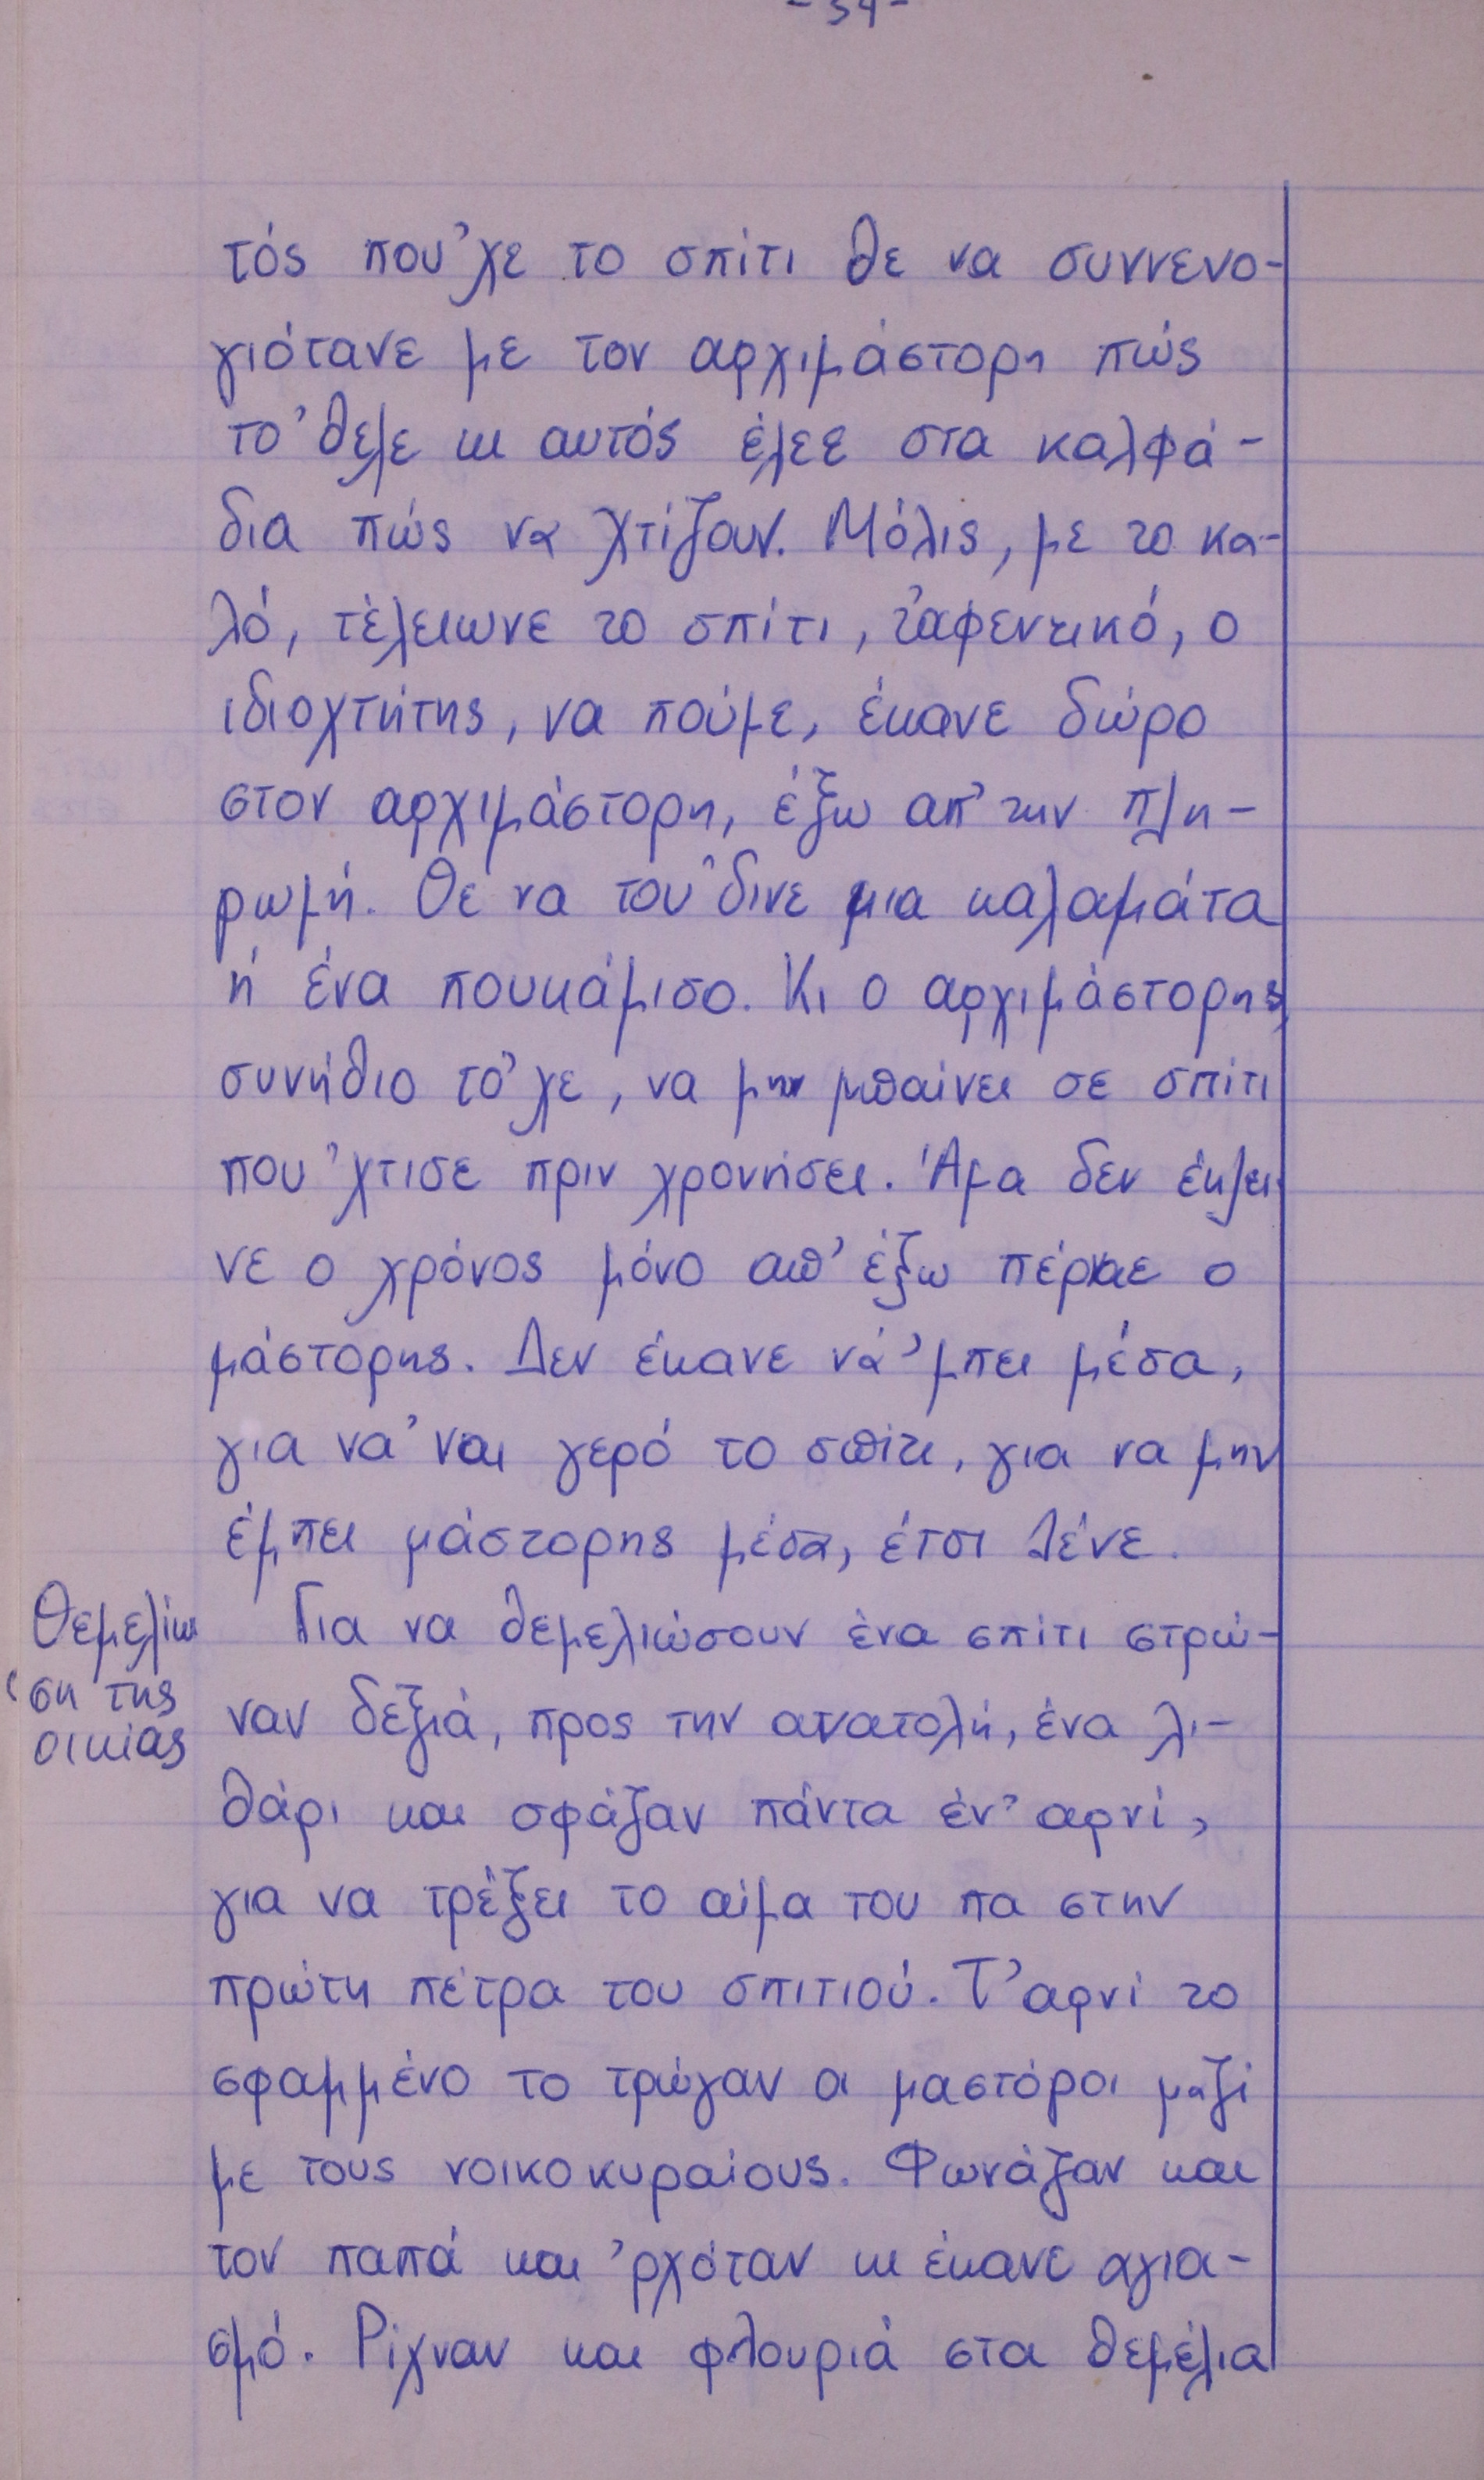 τός που'χε το σπίτι θε να συννενο-
γιότανε με τον αρχιμάστορη πώς
το'θελε κι αυτός έλεε στα καλφά-
δια πώς να χτίζουν. Μόλις, με το κα-
λό, τέλειωνε το σπίτι, τ'αφεντικό, ο
ιδιοχτήτης, να πούμε, έκανε δώρο
στον αρχιμάστορη, έξω απ' την πλη-
ρωμή. Θε να του'δινε μια καλαμάτα
ή ένα πουκάμισο. Κι ο αρχιμάστορης,
συνήθιο το'χε, να μην μπαίνει σε σπίτι
που'χτισε πριν χρονήσει. Άμα δεν έκλει-
νε ο χρόνος μόνο απ' έξω πέρναε ο
μάστορης. Δεν έκανε νά'μπει μέσα,
για να'ναι γερό το σπίτι, για να μην
έμπει μάστορης μέσα, έτσι λένε.
Θεμελίω
ση της
οικίας
Για να θεμελιώσουν ένα σπίτι στρώ-
ναν δεξιά, προς την ανατολή, ένα λι-
θάρι και σφάζαν πάντα έν' αρνί,
για να τρέξει το αίμα του πα στην
πρώτη πέτρα του σπιτιού. Τ'αρνί το
σφαμμένο το τρώγαν οι μαστόροι μαζί
με τους νοικοκυραίους. Φωνάζαν και
τον παπά και 'ρχόταν κι έκανε αγια-
σμό. Ρίχναν και φλουριά στα θεμέλια